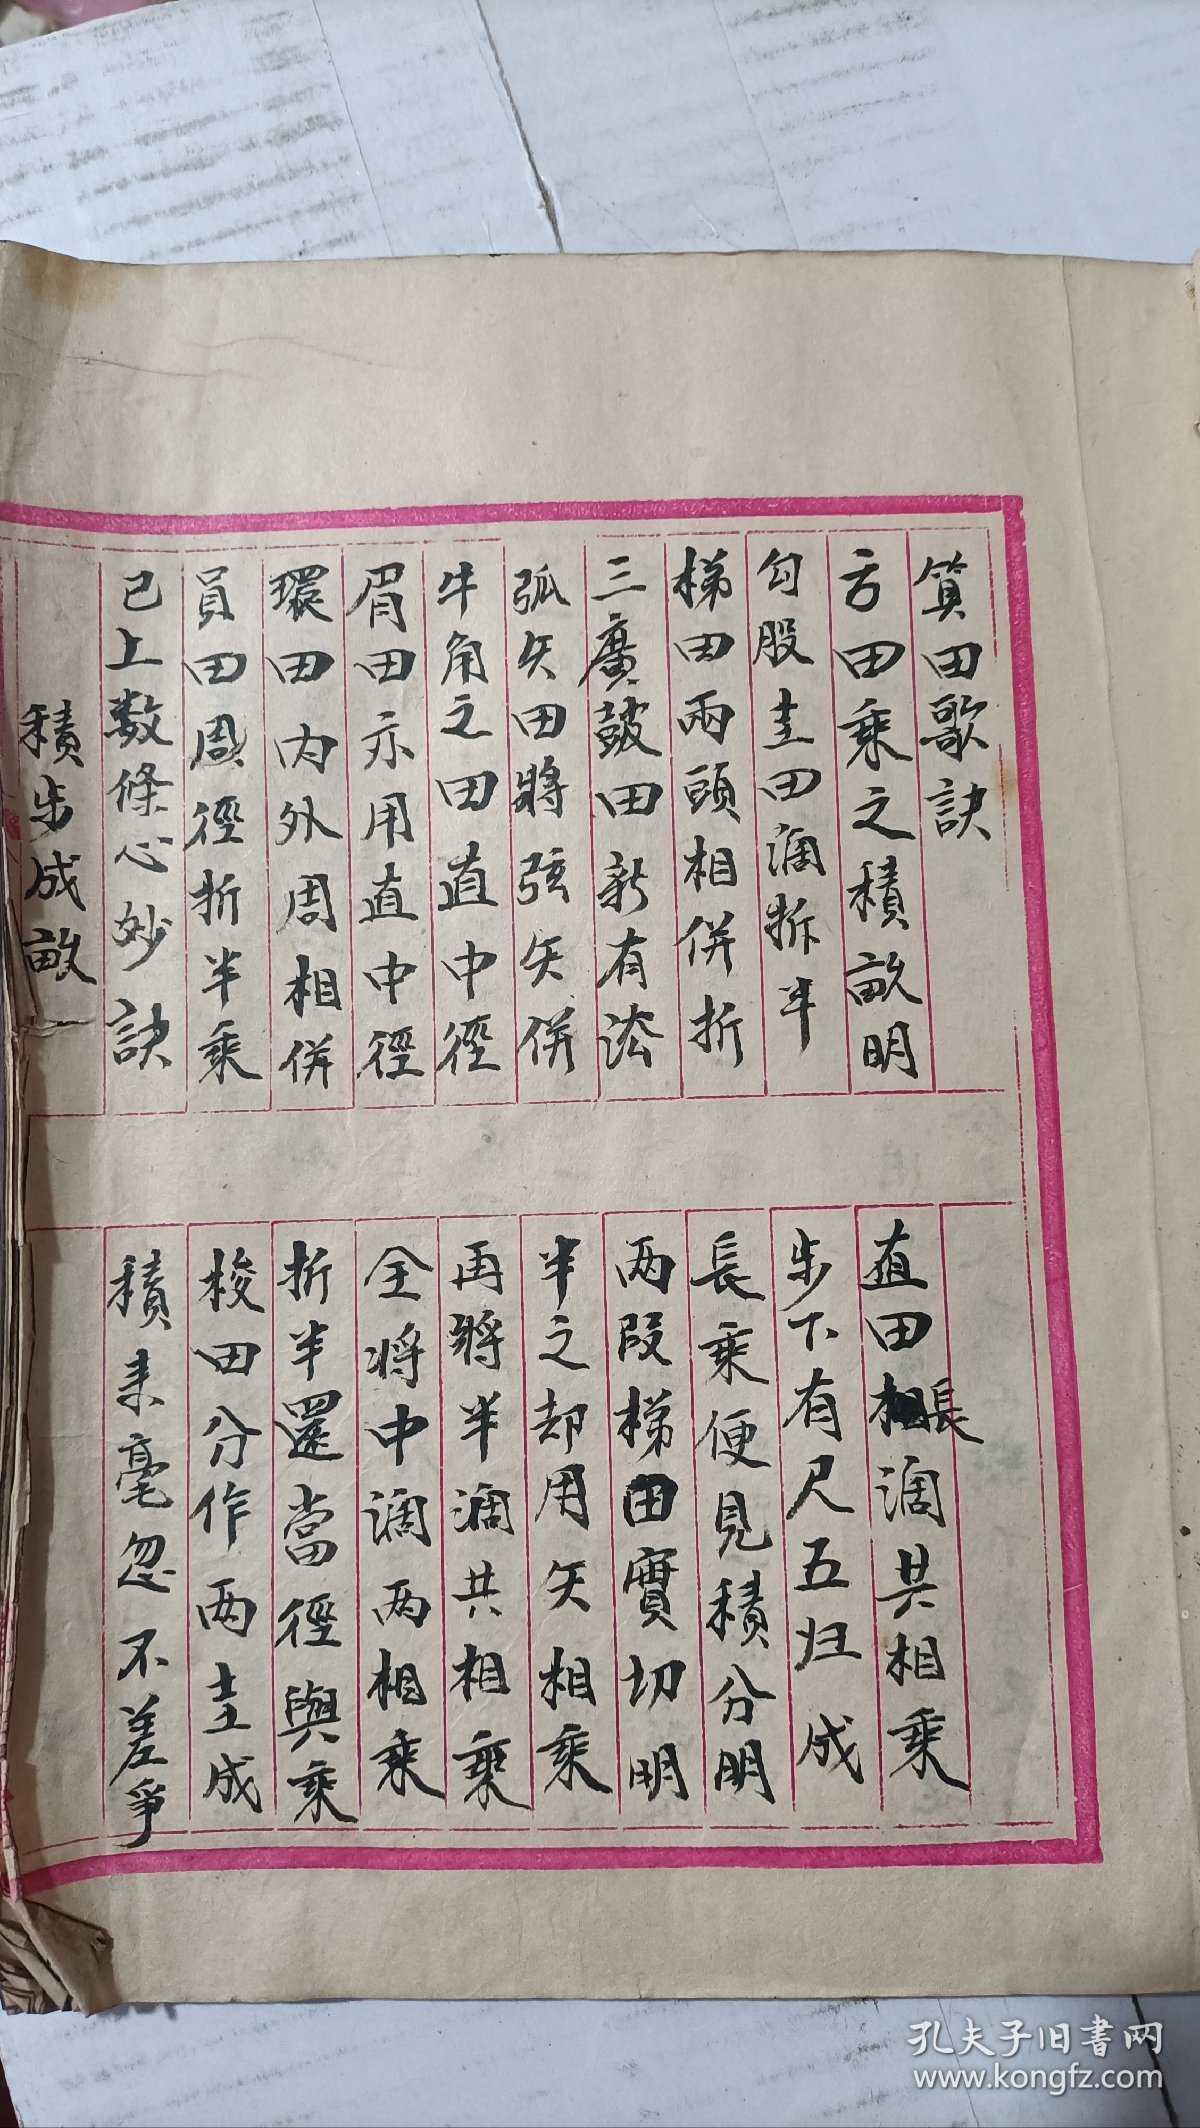 算田歌訣
方田乘之積畝明
直田長濶共相乘
勾股圭田濶折半
步下有尺五归成
梯田兩頭相併折
長乘便見積分明
三廣鼓田新有法
两段梯田實切明
弧矢田將弦矢併
半之却用矢相乘
牛角之田直中徑
再將半濶共相乘
眉田亦用直中徑
全將中濶两相乘
環田内外周相併
折半還當徑與乘
員田周徑折半乘
梭田分作两圭成
已上数條心妙訣
積来毫忽不差爭
積步成畝
孔夫子旧书网
www.kongfz.com